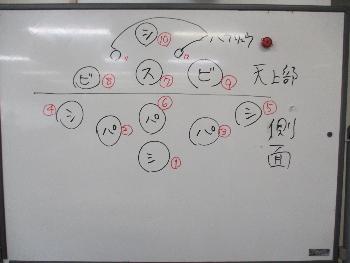 シ ⑩
ビ ⑧ ス ⑦ ビ ⑨ 天上部
④ シ パ ② パ ⑥ パ ③ シ ⑤ 側面
ミ ①